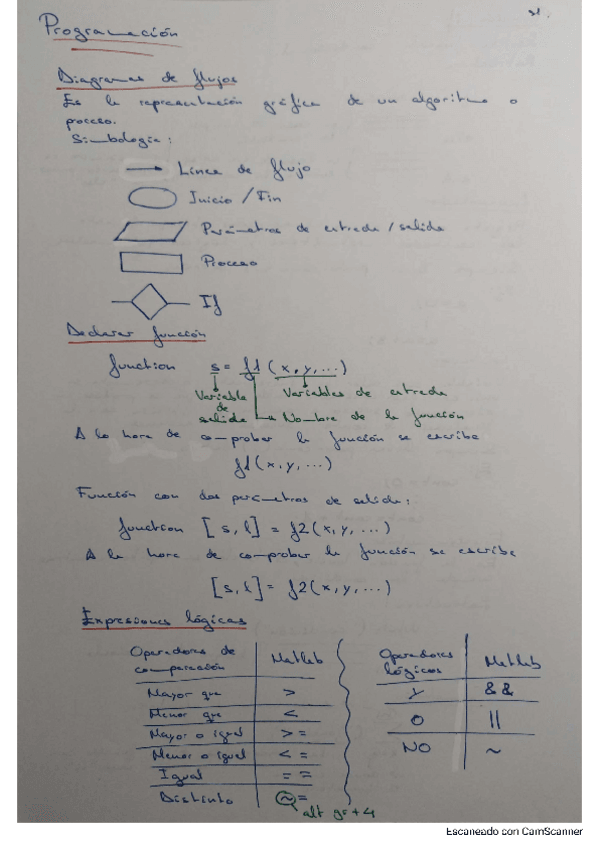 31.
Programación
Diagramas de flujos
Es la representación gráfica de un algoritmo o
proceso.
Simbología:
Línea de flujo
Inicio / Fin
Parámetros de entrada / salida
Proceso
If
Declarar función
function s = f1 (x, y, ...)
Variable de salida
Variables de entrada
Nombre de la función
A la hora de comprobar la función se escribe
f1 (x, y, ...)
Función con dos parámetros de salida:
function [s, l] = f2 (x, y, ...)
A la hora de comprobar la función se escribe
[s, l] = f2 (x, y, ...)
Expresiones lógicas
Operadores de comparación Matlab
Mayor que >
Menor que <
Mayor o igual > =
Menor o igual < =
Igual = =
Distinto ~ =
alt gr + 4
Operadores lógicos Matlab
Y & &
O ||
NO ~
Escaneado con CamScanner